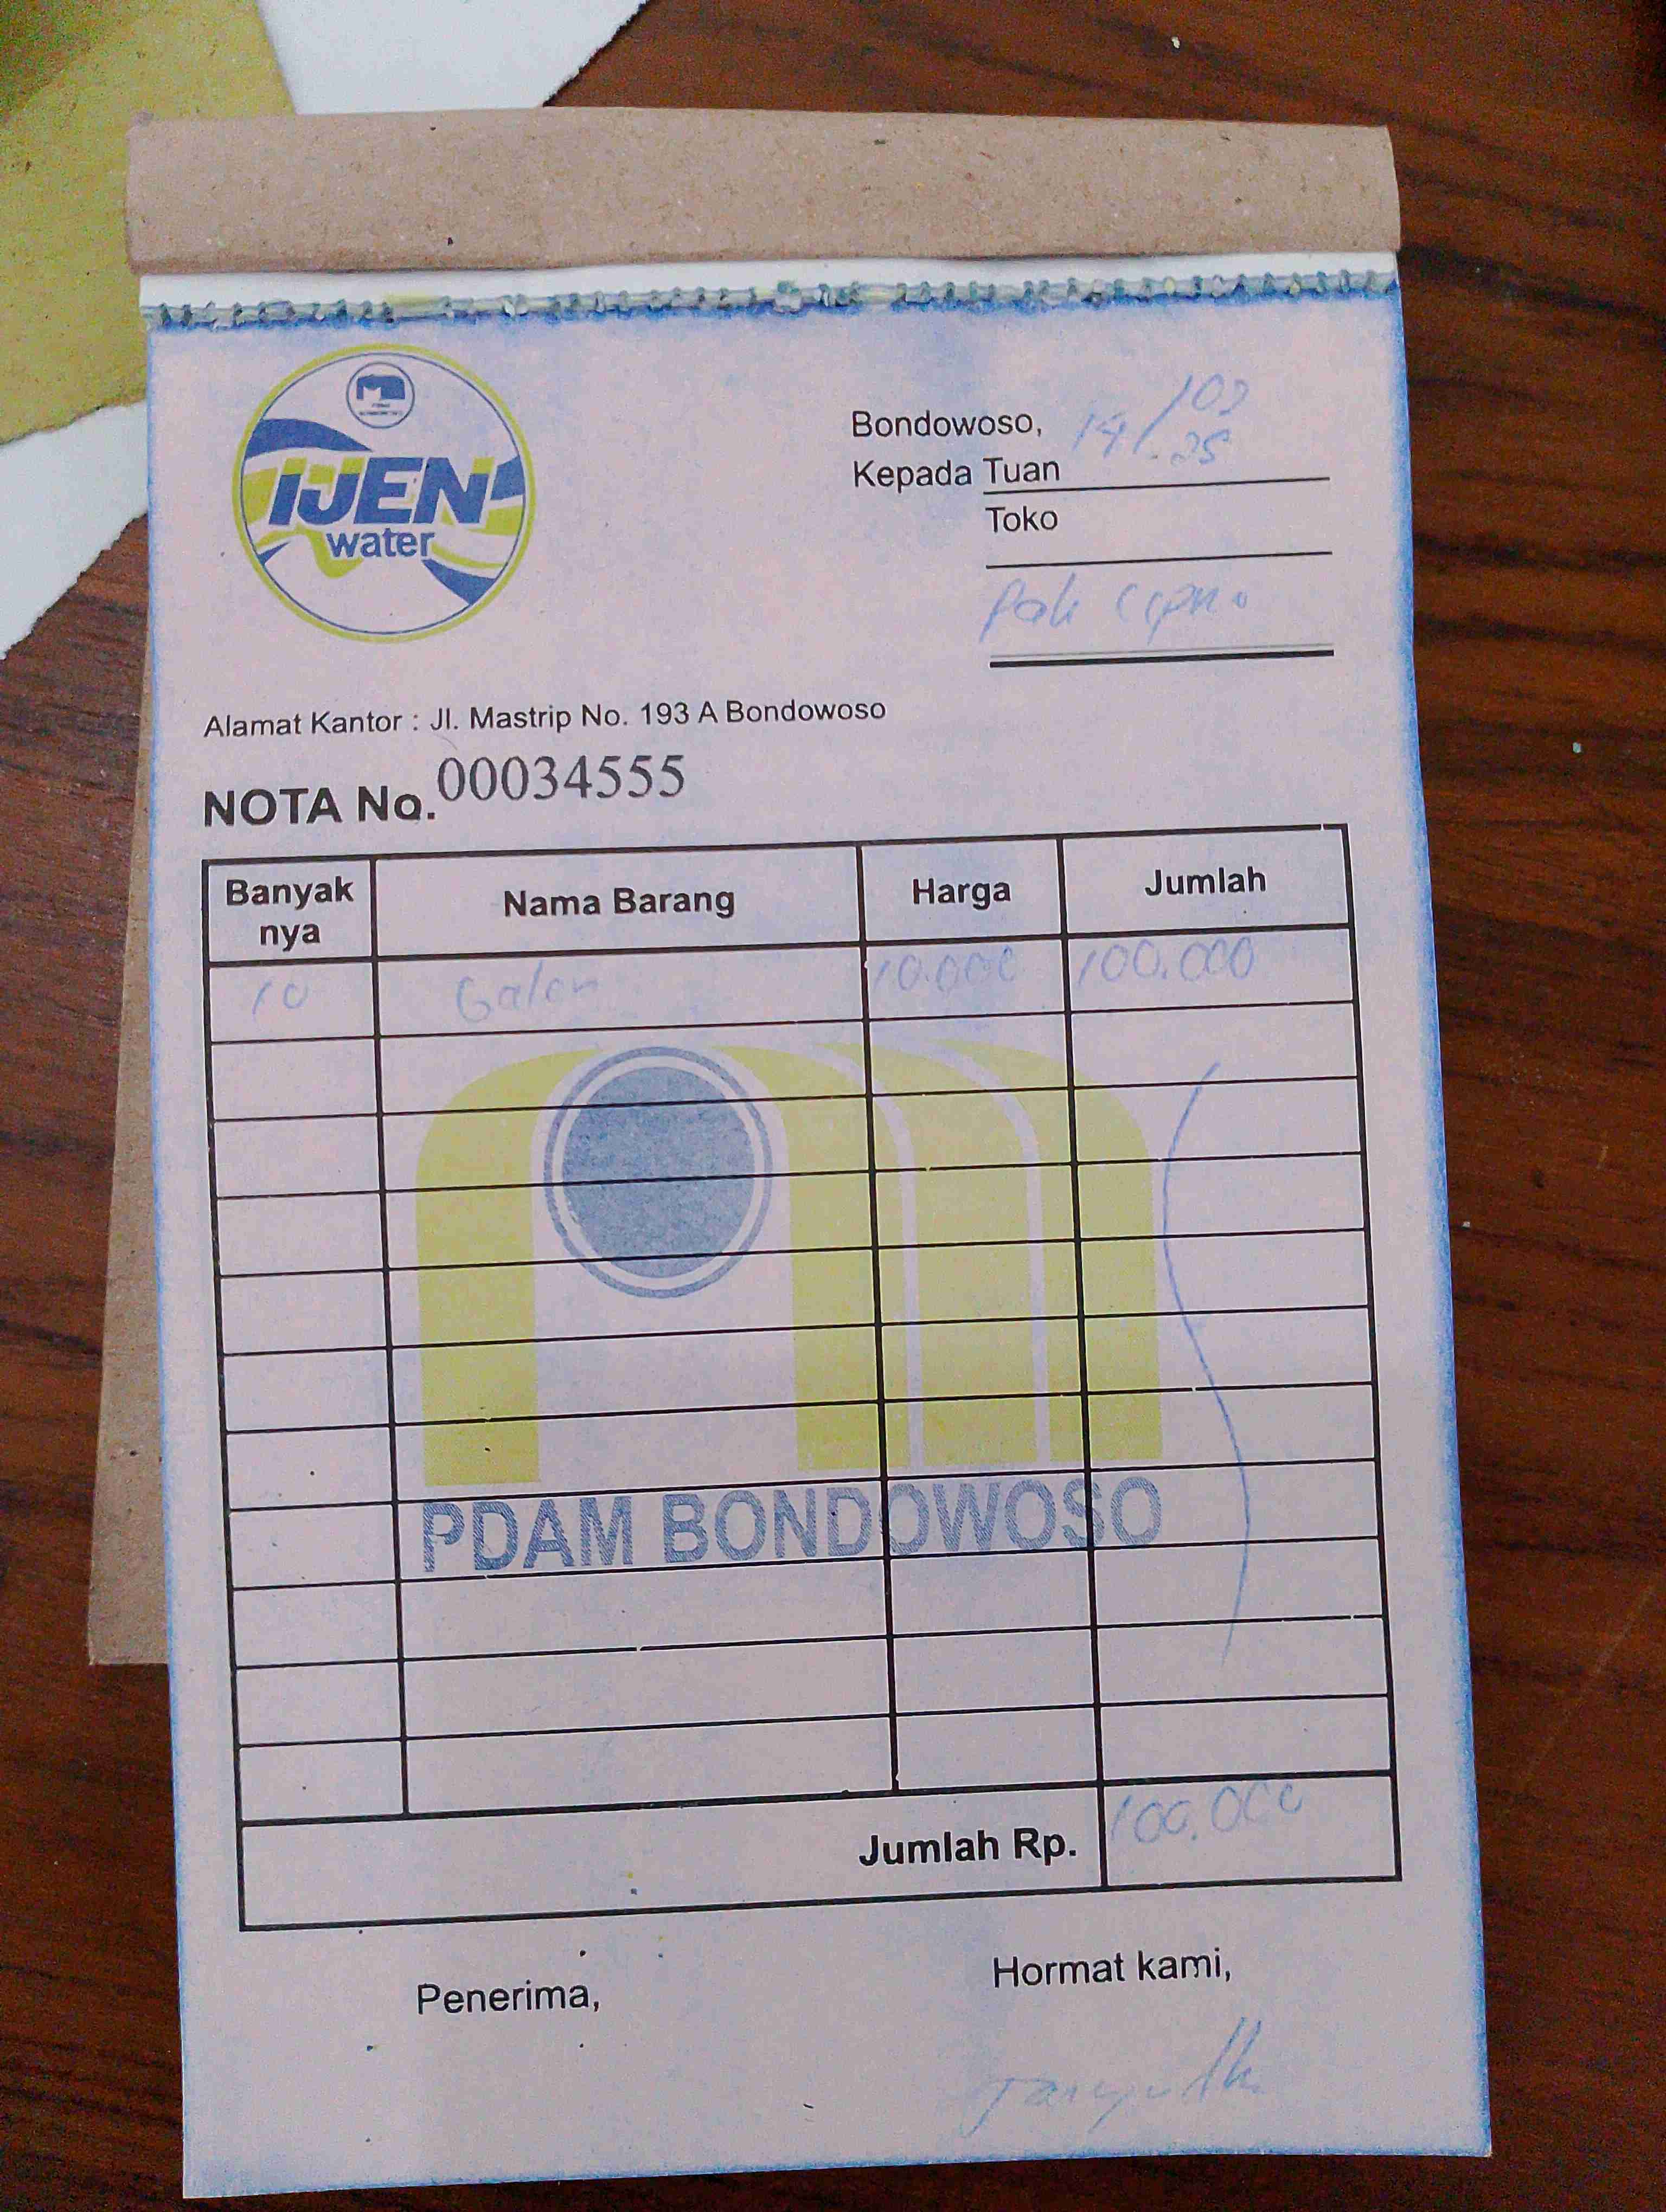 IJEN
water
Bondowoso, 14/
Kepada Tuan
Toko
Pak
Alamat Kantor : Jl. Mastrip No. 193 A Bondowoso
NOTA No. 00034555
Banyak nya Nama Barang Harga Jumlah
10 Galon 10.000 100.000
PDAM BONDOWOSO
Jumlah Rp. 100.000
Penerima, Hormat kami,